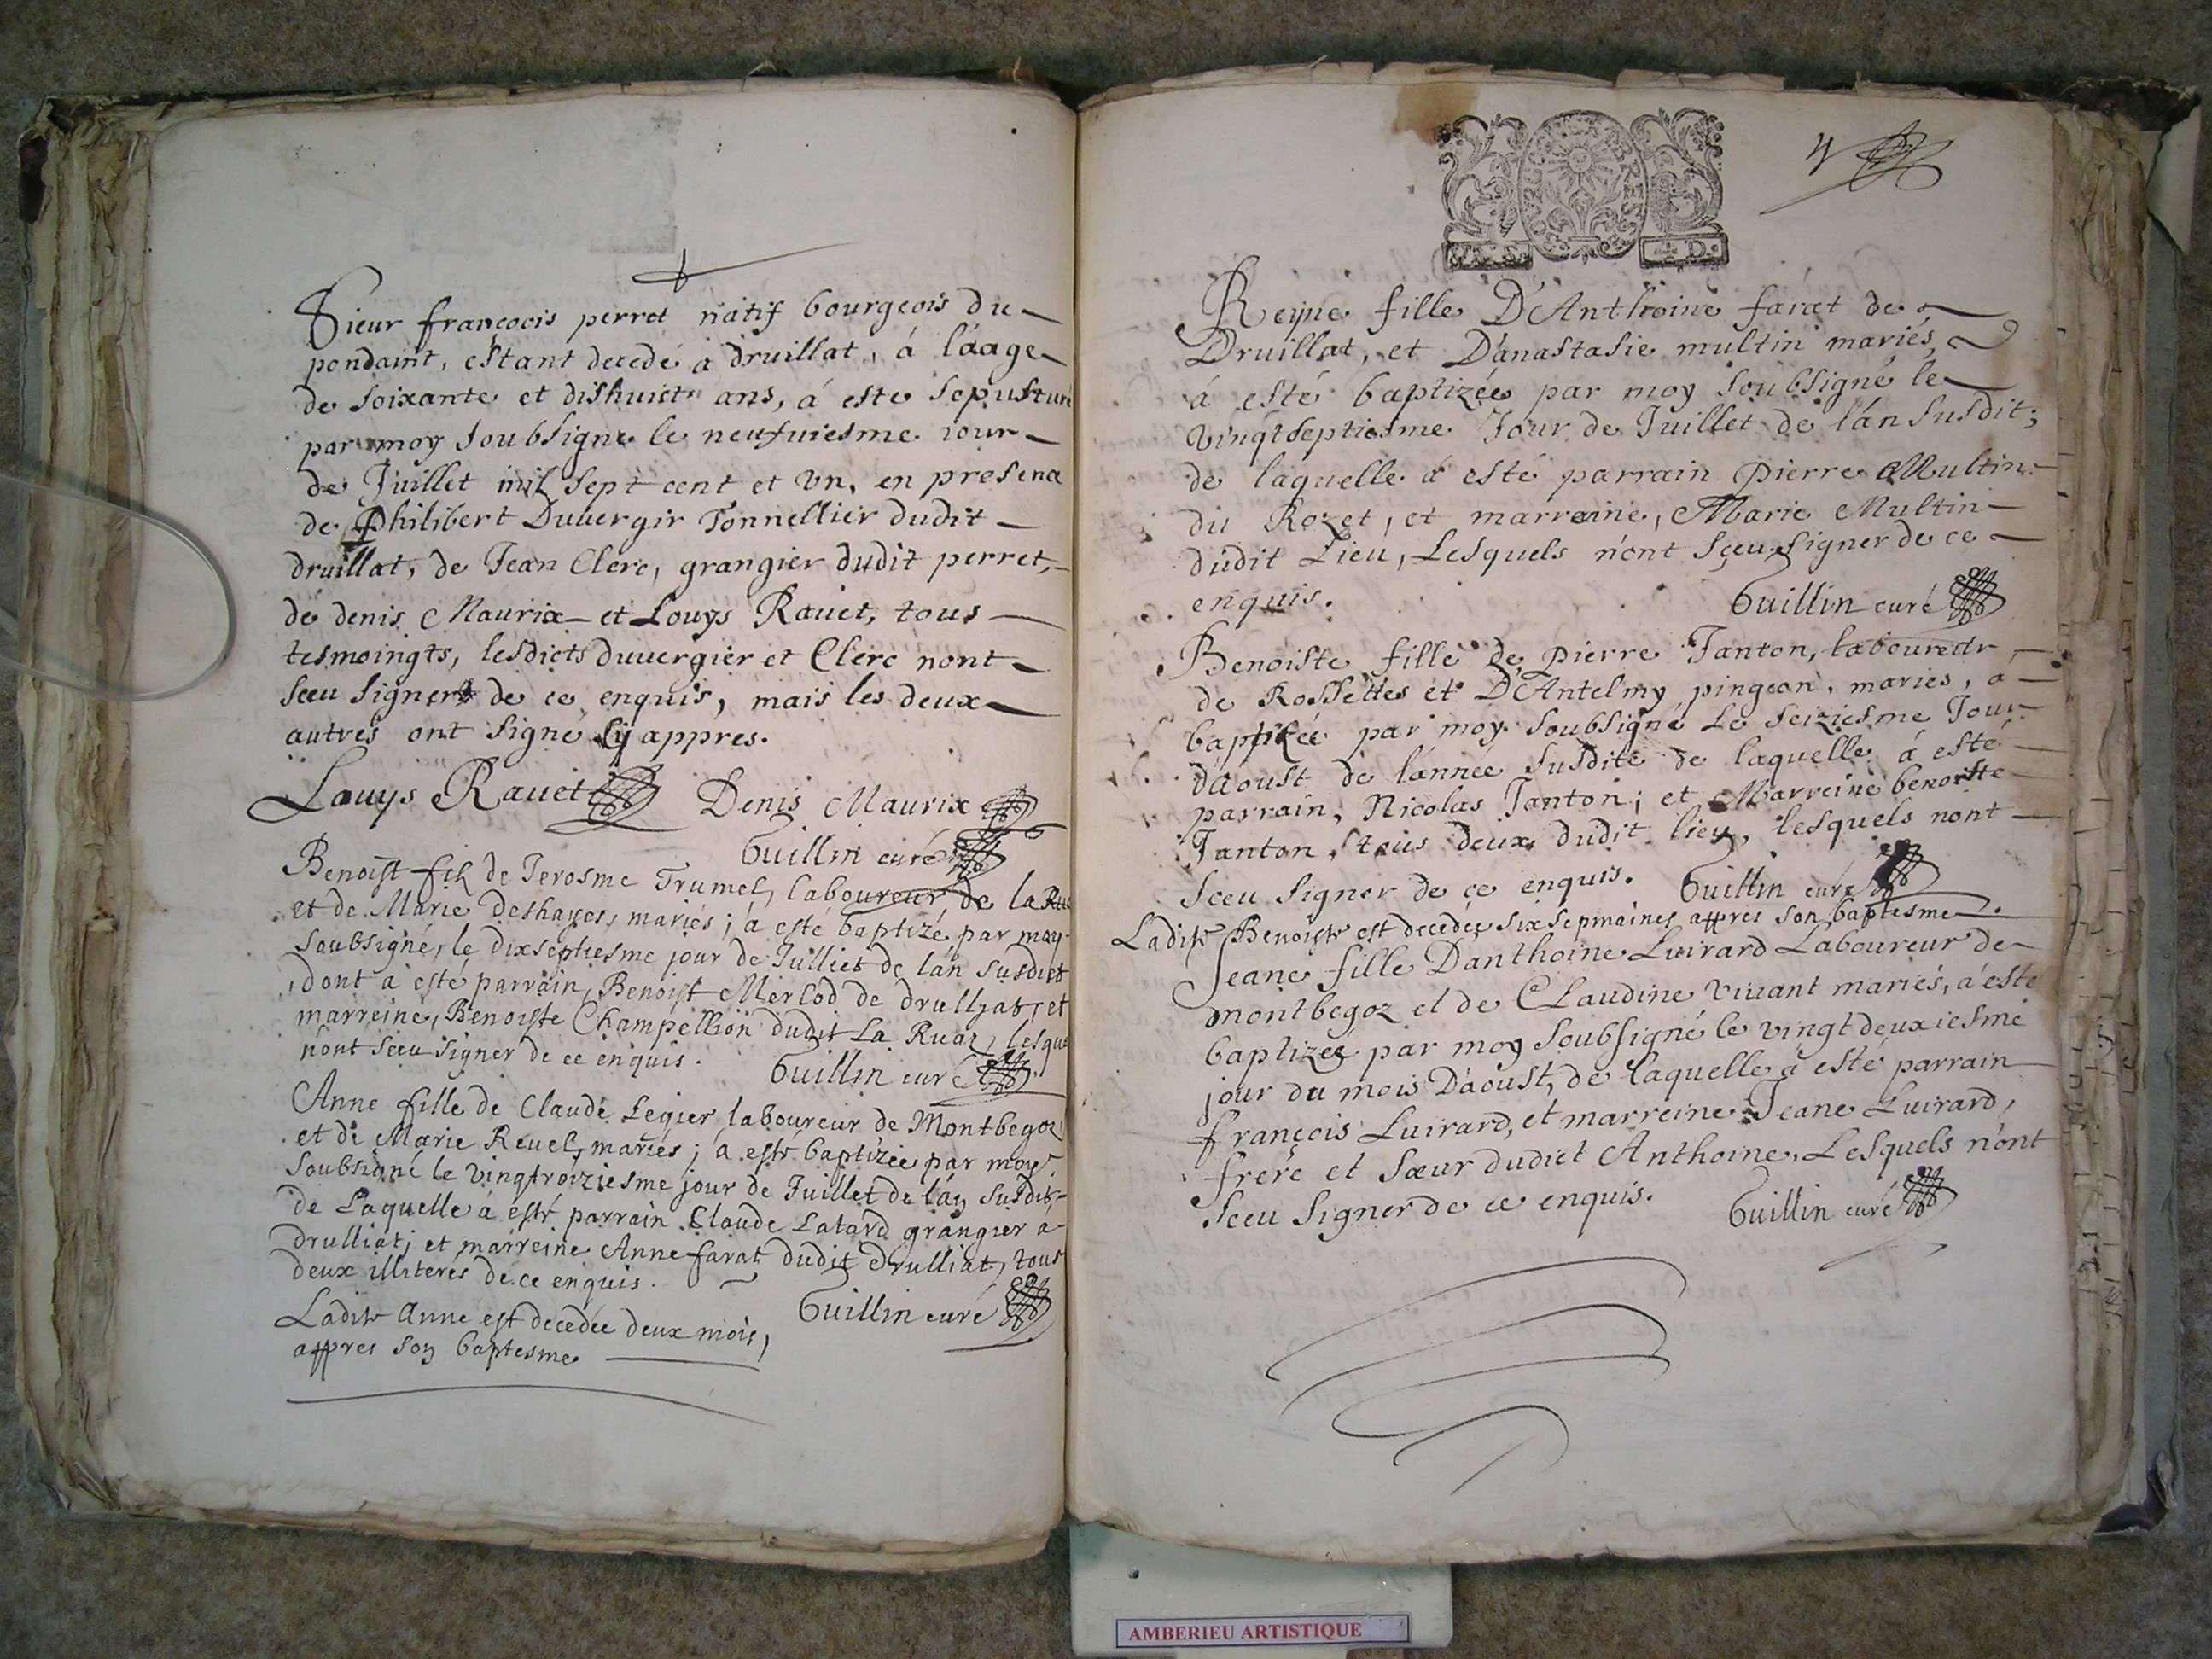 Sieur françoois perret natif bourgeois du
pondaint, estant decedé a druillat, á láage
de soixante et dishuict ans, á este sepusturé
par moy soubsigne le neufuiesme iour
de Juillet mil sept cent et vn, en presence
de Philibert Duuergir Tonnellier dudit
druillat, de Jean Clerc, grangier dudit perret,
de denis Maurix et Louys Rauet, tous
tesmoingts, lesdicts duuergier et Clerc nont
sceu signer de ce enquis, mais les deux
autres ont signé cy appres.
Louys Rauet Denis Maurix
Guillin curé
Benoist fils de Jerosme Trumel, laboureur de la Rua
et de Marie Deshayes, mariés; á esté baptizé par moy
soubsigné, le dixseptiesme jour de Julliet de lán susdict
dont a esté parrain, Benoist Merlod de drulliat, et
marreine, Benoiste Champellion dudit La Ruaz, lesque
nont sceu signer de ce enquis. Guillin curé
Anne fille de Claude Legier laboureur de Montbegoz
et de Marie Reuel, mariés; á esté baptizée par moy
soubsigné le vingtroiziesme jour de Juillet de lán susdit,
de Laquelle á esté parrain Claude Latard grangier a
drulliat; et marreine Anne farat dudit Drulliat, tous
deux illiteres de ce enquis.
Guillin curé
Ladite Anne est decedée deux mois,
appres son baptesme
4
Reyne fille D'Anthoine farat de
Druillat, et D'anastasie multin mariés
á esté baptizée par moy soubsigné le
vingtseptiesme Jour de Juillet de lán susdit;
de laquelle á esté parrain Pierre Multin
du Rozet, et marreine, Marie Multin
dudit Lieu, Lesquels n'ont sçeu signer de ce
enquis. Guillin curé
Benoiste fille de Pierre Janton, laboureur
de Rossettes et D'Antelmy pingeon, mariés, a
baptizée par moy soubsigné Le seiziesme Jour
dáoust de lánnee susdite de laquelle á esté
parrain, Nicolas Janton; et Marreine benoiste
Janton, tous deux dudit lieu, lesquels nont
sceu signer de ce enquis. Guillin curé
Ladite Benoiste est decedée six sepmaines appres son baptesme.
Jeane fille Danthoine Luirard Laboureur de
montbegoz et de CLaudine viuant mariés, á esté
baptizee par moy soubsigné le vingtdeuxiesme
jour du mois Dáoust, de laquelle á esté parrain
françois Luirard, et marreine Jeane Luirard,
frere et sœur dudict Anthoine, Lesquels n'ont
sceu signer de ce enquis. Guillin curé
AMBERIEU ARTISTIQUE